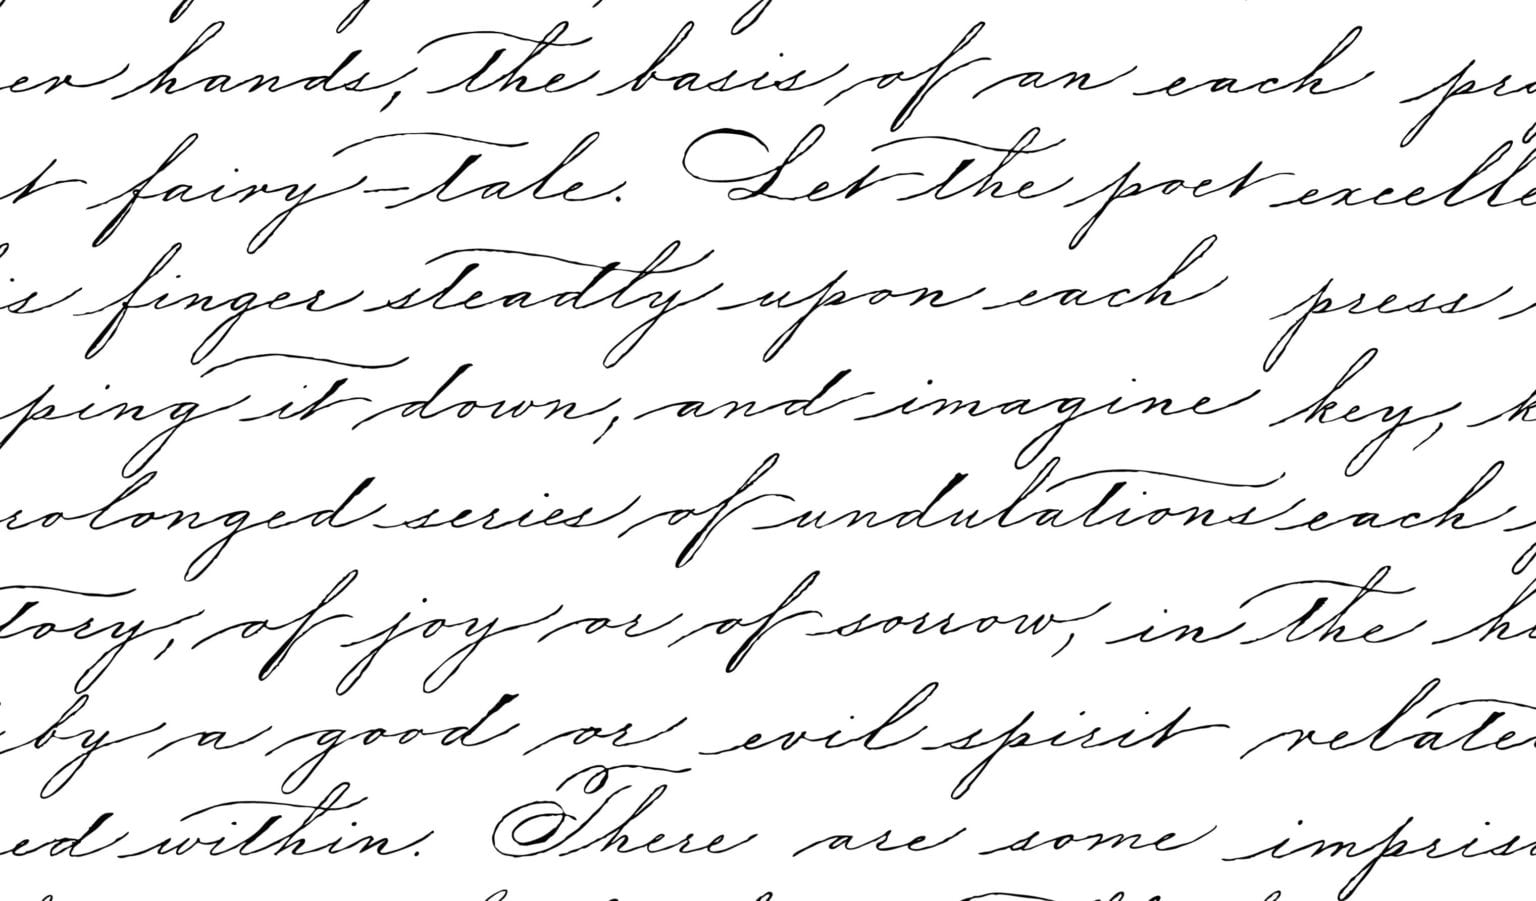 er hands, the basis of an each pro
t fairy-tale. Let the poet excelle
is finger steadly upon each press
ping it down, and imagine key, k
rolonged series of undulations each
tory, of joy or of sorrow, in the ha
by a good or evil spirit relate
ed within. There are some impriso